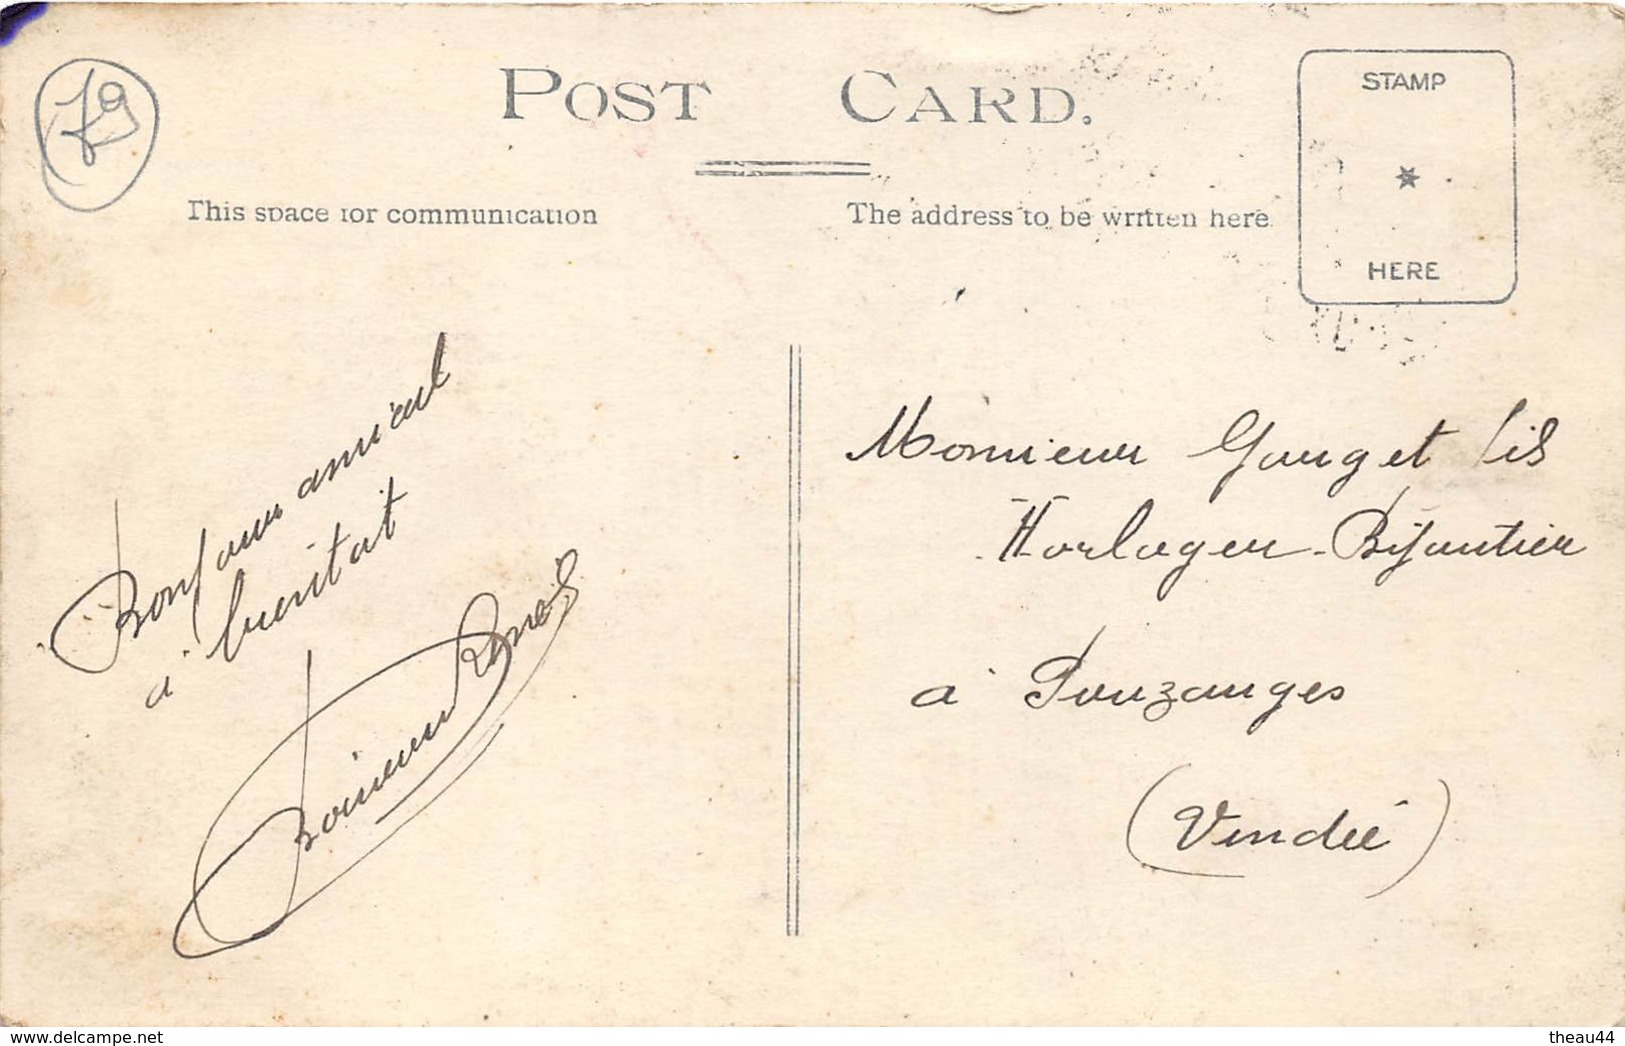 79
POST CARD.
This space for communication
The address to be written here
STAMP
HERE
Bonjour amical
à bientôt
Monsieur Gouget fils
Horloger-Bijoutier
à Pouzauges
(Vendée)
www.delcampe.net
theau44